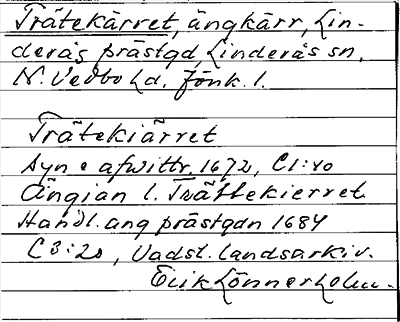 Trätekärret, ängkärr, Lin-
derås prästgd, Linderås sn,
N. Vedbo hd. Jönk. l.
Trätekiärret
Syn o afwittr. 1672, C1:40
Ängian l. Trättekierret
Handl. ang prästgdn 1684
C3:20, Vadst. landsarkiv.
Erik Lönnerholm.